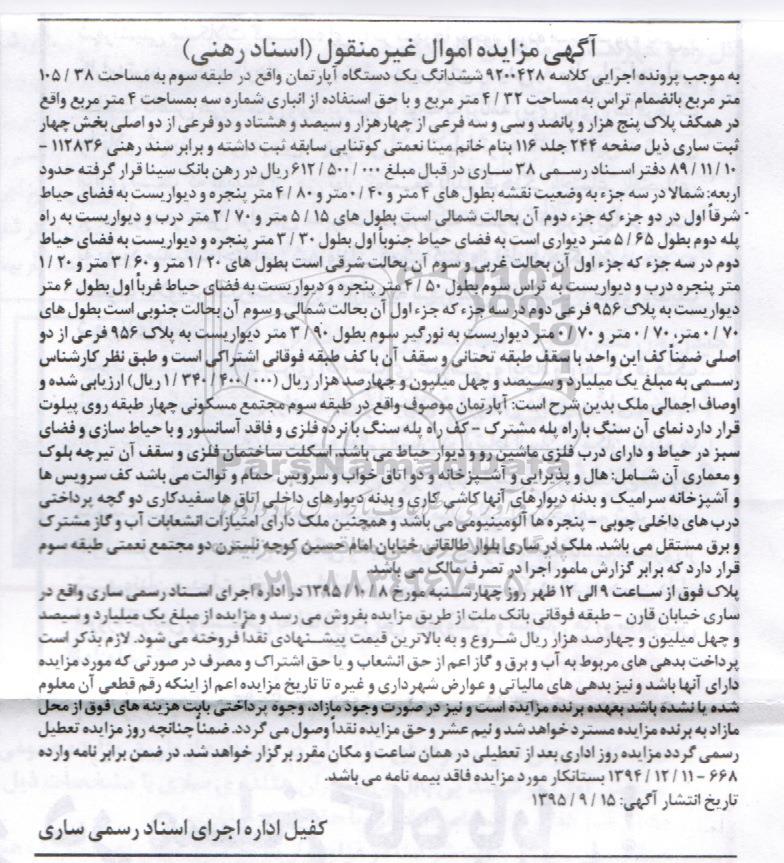 آگهی مزایده اموال غیرمنقول (اسناد رهنی)
به موجب پرونده اجرایی کلاسه ۹۲۰۰۴۲۸ ششدانگ یک دستگاه آپارتمان واقع در طبقه سوم به مساحت ۳۸ / ۱۰۵
متر مربع بانضمام تراس به مساحت ۳۲ / ۴ متر مربع و با حق استفاده از انباری شماره سه بمساحت ۴ متر مربع واقع
در همکف پلاک پنج هزار و پانصد و سی و سه فرعی از چهارهزار و سیصد و هشتاد و دو فرعی از دو اصلی بخش چهار
ثبت ساری ذیل صفحه ۲۴۴ جلد ۱۱۶ بنام خانم مینا نعمتی کوتنایی سابقه ثبت داشته و برابر سند رهنی ۱۱۲۸۳۶ -
۱۰ / ۱۱ / ۸۹ دفتر اسناد رسمی ۳۸ ساری در قبال مبلغ ۰۰۰ / ۵۰۰ / ۶۱۲ ریال در رهن بانک سینا قرار گرفته حدود
اربعه: شمالا در سه جزء به وضعیت نقشه بطول های ۴ متر و ۴۰ / ۰ متر و ۸۰ / ۴ متر پنجره و دیواریست به فضای حیاط
شرقاً اول در دو جزء که جزء دوم آن بحالت شمالی است بطول های ۱۵ / ۵ متر و ۷۰ / ۲ متر درب و دیواریست به راه
پله دوم بطول ۶۵ / ۵ متر دیواری است به فضای حیاط جنوباً اول بطول ۳۰ / ۳ متر پنجره و دیواریست به فضای حیاط
دوم در سه جزء که جزء اول آن بحالت غربی و سوم آن بحالت شرقی است بطول های ۲۰ / ۱ متر و ۶۰ / ۳ متر و ۲۰ / ۱
متر پنجره درب و دیواریست به تراس سوم بطول ۵۰ / ۴ متر پنجره و دیواریست به فضای حیاط غرباً اول بطول ۶ متر
دیواریست به پلاک ۹۵۶ فرعی دوم در سه جزء که جزء اول آن بحالت شمالی و سوم آن بحالت جنوبی است بطول های
۷۰ / ۰ متر، ۷۰ / ۰ متر و ۷۰ / ۰ متر دیواریست به نورگیر سوم بطول ۹۰ / ۳ متر دیواریست به پلاک ۹۵۶ فرعی از دو
اصلی ضمناً کف این واحد با سقف طبقه تحتانی و سقف آن با کف طبقه فوقانی اشتراکی است و طبق نظر کارشناس
رسمی به مبلغ یک میلیارد و سیصد و چهل میلیون و چهارصد هزار ریال (۰۰۰ / ۴۰۰ / ۳۴۰ / ۱ ریال) ارزیابی شده و
اوصاف اجمالی ملک بدین شرح است: آپارتمان موصوف واقع در طبقه سوم مجتمع مسکونی چهار طبقه روی پیلوت
قرار دارد نمای آن سنگ با راه پله مشترک - کف راه پله سنگ با نرده فلزی و فاقد آسانسور و با حیاط سازی و فضای
سبز در حیاط و دارای درب فلزی ماشین رو و دیوار حیاط می باشد. اسکلت ساختمان فلزی و سقف آن تیرچه بلوک
و معماری آن شامل: هال و پذیرایی و آشپزخانه و دو اتاق خواب و سرویس حمام و توالت می باشد کف سرویس ها
و آشپزخانه سرامیک و بدنه دیوارهای آنها کاشی کاری و بدنه دیوارهای داخلی اتاق ها سفیدکاری دو گچه پرداختی
درب های داخلی چوبی - پنجره ها آلومینیومی می باشد و همچنین ملک دارای امتیازات انشعابات آب و گاز مشترک
و برق مستقل می باشد. ملک در ساری بلوار طالقانی خیابان امام حسین کوچه نلیتزن دو مجتمع نعمتی طبقه سوم
قرار دارد که برابر گزارش مامور اجرا در تصرف مالک می باشد
پلاک فوق از ساعت ۹ الی ۱۲ ظهر روز چهارشنبه مورخ ۸ / ۱۰ / ۱۳۹۵ در اداره اجرای اسناد رسمی ساری واقع در
ساری خیابان قارن - طبقه فوقانی بانک ملت از طریق مزایده بفروش می رسد و مزایده از مبلغ یک میلیارد و سیصد
و چهل میلیون و چهارصد هزار ریال شروع و به بالاترین قیمت پیشنهادی نقداً فروخته می شود. لازم بذکر است
پرداخت بدهی های مربوط به آب و برق و گاز اعم از حق انشعاب و یا حق اشتراک و مصرف در صورتی که مورد مزایده
دارای آنها باشد و نیز بدهی های مالیاتی و عوارض شهرداری و غیره تا تاریخ مزایده اعم از اینکه رقم قطعی آن معلوم
شده یا نشده باشد بعهده برنده مزایده است و نیز در صورت وجود مازاد، وجوه پرداختی بابت هزینه های فوق از محل
مازاد به برنده مزایده مسترد خواهد شد و نیم عشر و حق مزایده نقداً وصول می گردد. ضمناً چنانچه روز مزایده تعطیل
رسمی گردد مزایده روز اداری بعد از تعطیلی در همان ساعت و مکان مقرر برگزار خواهد شد. در ضمن برابر نامه وارده
۶۶۸ - ۱۱ / ۱۲ / ۱۳۹۴ بستانکار مورد مزایده فاقد بیمه نامه می باشد.
تاریخ انتشار آگهی: ۱۵ / ۹ / ۱۳۹۵
کفیل اداره اجرای اسناد رسمی ساری
ParsNamadData
۰۲۱-۸۸۳۴۹۶۷۰-۵